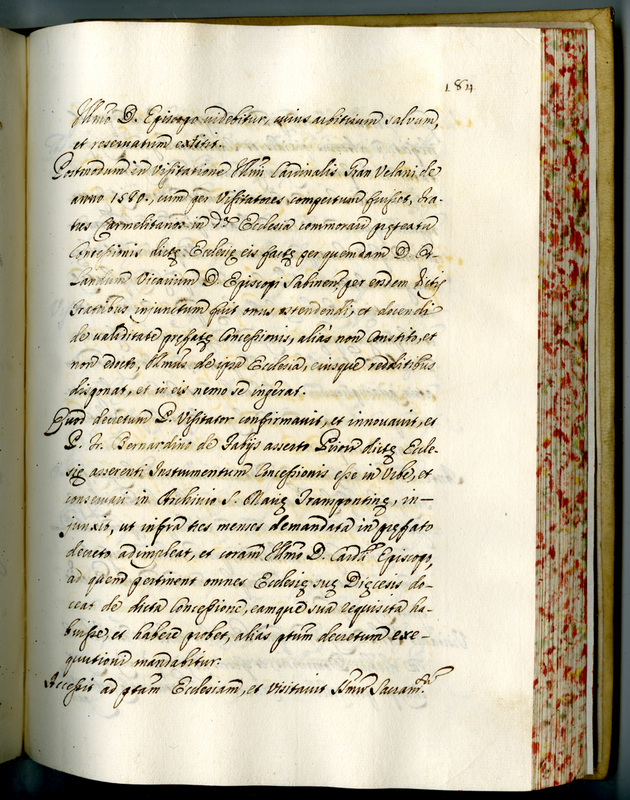 184
Ill.mo D. Episcopo videbitur, cuius arbitrium salvum,
et reservatum extitit.
Postmodum in Visitatione Ill.mi Cardinalis Gran Velani de
anno 1580., cum per Visitatores compertum fuisset, Fra-
tres Carmelitanos in d.a Ecclesia commorari prętextu
Concessionis dictę Ecclesię eis factę per quendam D. Or-
landum Vicarium D. Episcopi Sabinen. per eosdem dictis
Fratribus injunctum fuit onus ostendendi, et docendi
de validitate pręfatę Concessionis, aliàs non Constito, et
non edocto, Ill.mus de ipsa Ecclesia, eiusque redditibus
disponat, et in eis nemo se ingerat.
Quod decretum P. Visitator confirmavit, et innovavit, et
P. Fr. Bernardino de Fabijs asserto Priori dictę Eccle-
się asserenti Instrumentum Concessionis esse in Urbe, et
conservari in Archivio S. Marię Transpontinę, in-
junxit, ut infra tres menses demandata in pręfato
decreto adimpleat, et coram Ill.mo D. Card.li Episcopo,
ad quem pertinent omnes Ecclesię suę Dięcesis do-
ceat de dicta Concessione, eamque sua requisita ha-
buisse, et habere probet, aliàs ptum decretum exe-
quutioni mandabitur.
Accessit ad ptam Ecclesiam, et visitavit S.smum Sacram.tum